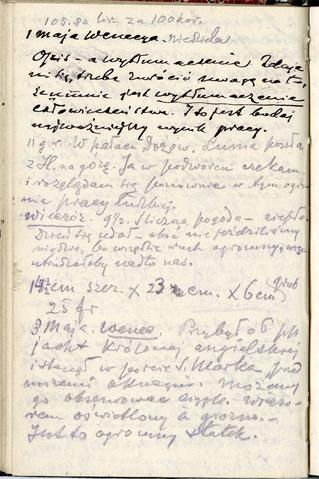 105.80 lir. za 100 kor.
1 maja Wenecya. niedziela
Opis – a wytłumaczenie. Zdaje
mi się, trzeba zwrócić uwagę na to,
że mnie jest wytłumaczenie
człowieczeństwa. I to jest bodaj
najważniejszy wynik pracy.
11 g. r. W pałacu Dożów. Lunia poszła
z H. na górę. Ja w podwórcu czekam
i rozglądam się ponownie w tym ogro
mie pracy ludzkiej.
Wieczór. 9½. Śliczna pogoda – ciepło.
Dzień się udał
nigdzie, bo wszędzie ruch ogromny,
nad nas.
14½ cm szer. X 23 cm. X 6 cm grub
25 fr
3 Maja. Wenec. Przybył o 6 pp
jacht Królowej angielskiej
i stanął w porcie S. Marka przed
naszemi oknami. Możemy
go obserwować ciągle. Wieczo-
rem oświetlony a giorno. –
Jest to ogromny statek.